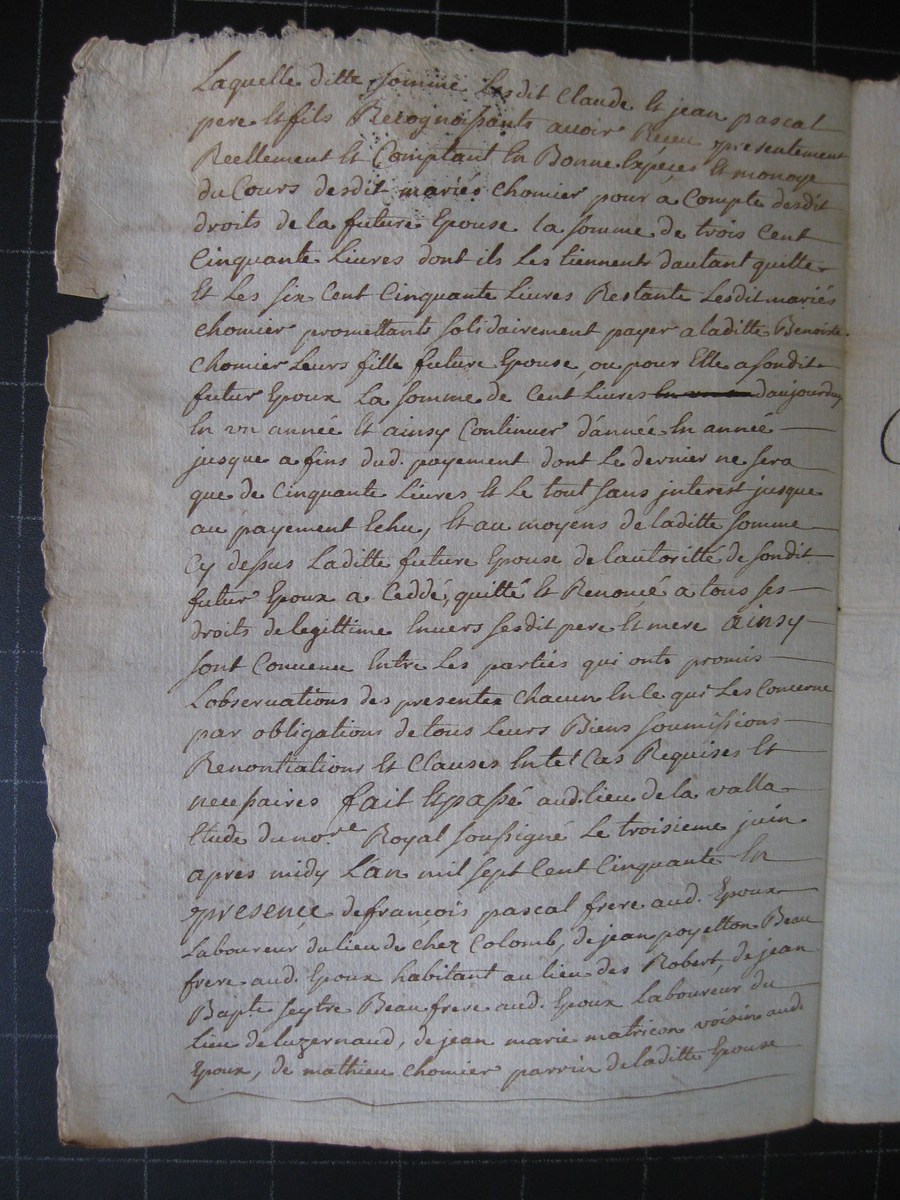 Laquelle ditte somme Lesdit Claude Et jean pascal
pere Et fils Recognoissants avoir Receu presentement
Reellement Et Comptant En Bonne Espeçes Et monoye
du Cours desdit mariés chomier pour a Compte desdit
droits de la future Epouse la somme de trois Cent
Cinquante Livres dont ils Les tiennent dautant quitte
Et Les six Cent Cinquante Livres Restante Lesdit mariés
chomier promettants solidairement payer a laditte Benoiste
chomier Leurs fille future Epouse, ou pour Elle a sondit
futur Epoux La somme de Cent Livres daujourduy
En un année Et ainsy Continuer d'année En année
jusque a fins dud. payement dont Le dernier ne sera
que de Cinquante Livres Et Le tout sans interest jusque
au payement Echu, Et au moyens de laditte somme
Cy dessus Laditte future Epouse de lautoritté de sondit
futur Epoux a Ceddé, quitté Et Renoncé a tous ses
droits de legittime Envers sesdit pere Et mere ainsy
sont Convenu Entre Les parties qui onts promis
Lobservations des presente chacun En Ce qui Les Concerne
par obligations de tous leurs Biens soumissions
Renontiations Et Clauses En tel Cas Requises Et
necessaires fait Et passé aud. lieu de la valla
Etude du nore Royal soussigné Le troisieme juin
apres midy L'an mil sept Cent Cinquante En
presençe de françois pascal frere aud. Epoux
Laboureur du lieu de chez Colomb, de jean poyetton Beau
frere aud. Epoux habitant au lieu des Robert, de jean
Bapte seytre Beaufrere aud. Epoux laboureur du
Lieu de luzernaud, de jean marie matricon voisin aud.
Epoux, de mathieu chomier parrin de laditte Epouse